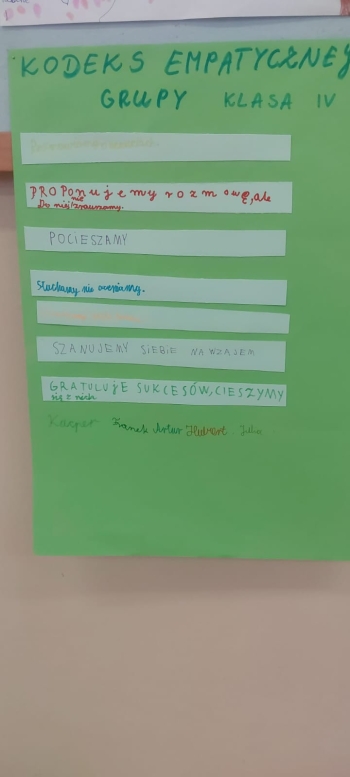 KODEKS EMPATYCZNEJ
GRUPY KLASA IV
PROPonujemy rozmowę, ale
nie
Do niej zmuszamy.
POCIESZAMY
Słuchamy nie oceniamy.
SZANUJEMY SIEBIE NA WZAJEM
GRATULUJE SUKCESÓW, CIESZYMY
się z nich
Kacper Franek Artur Hubert Julia